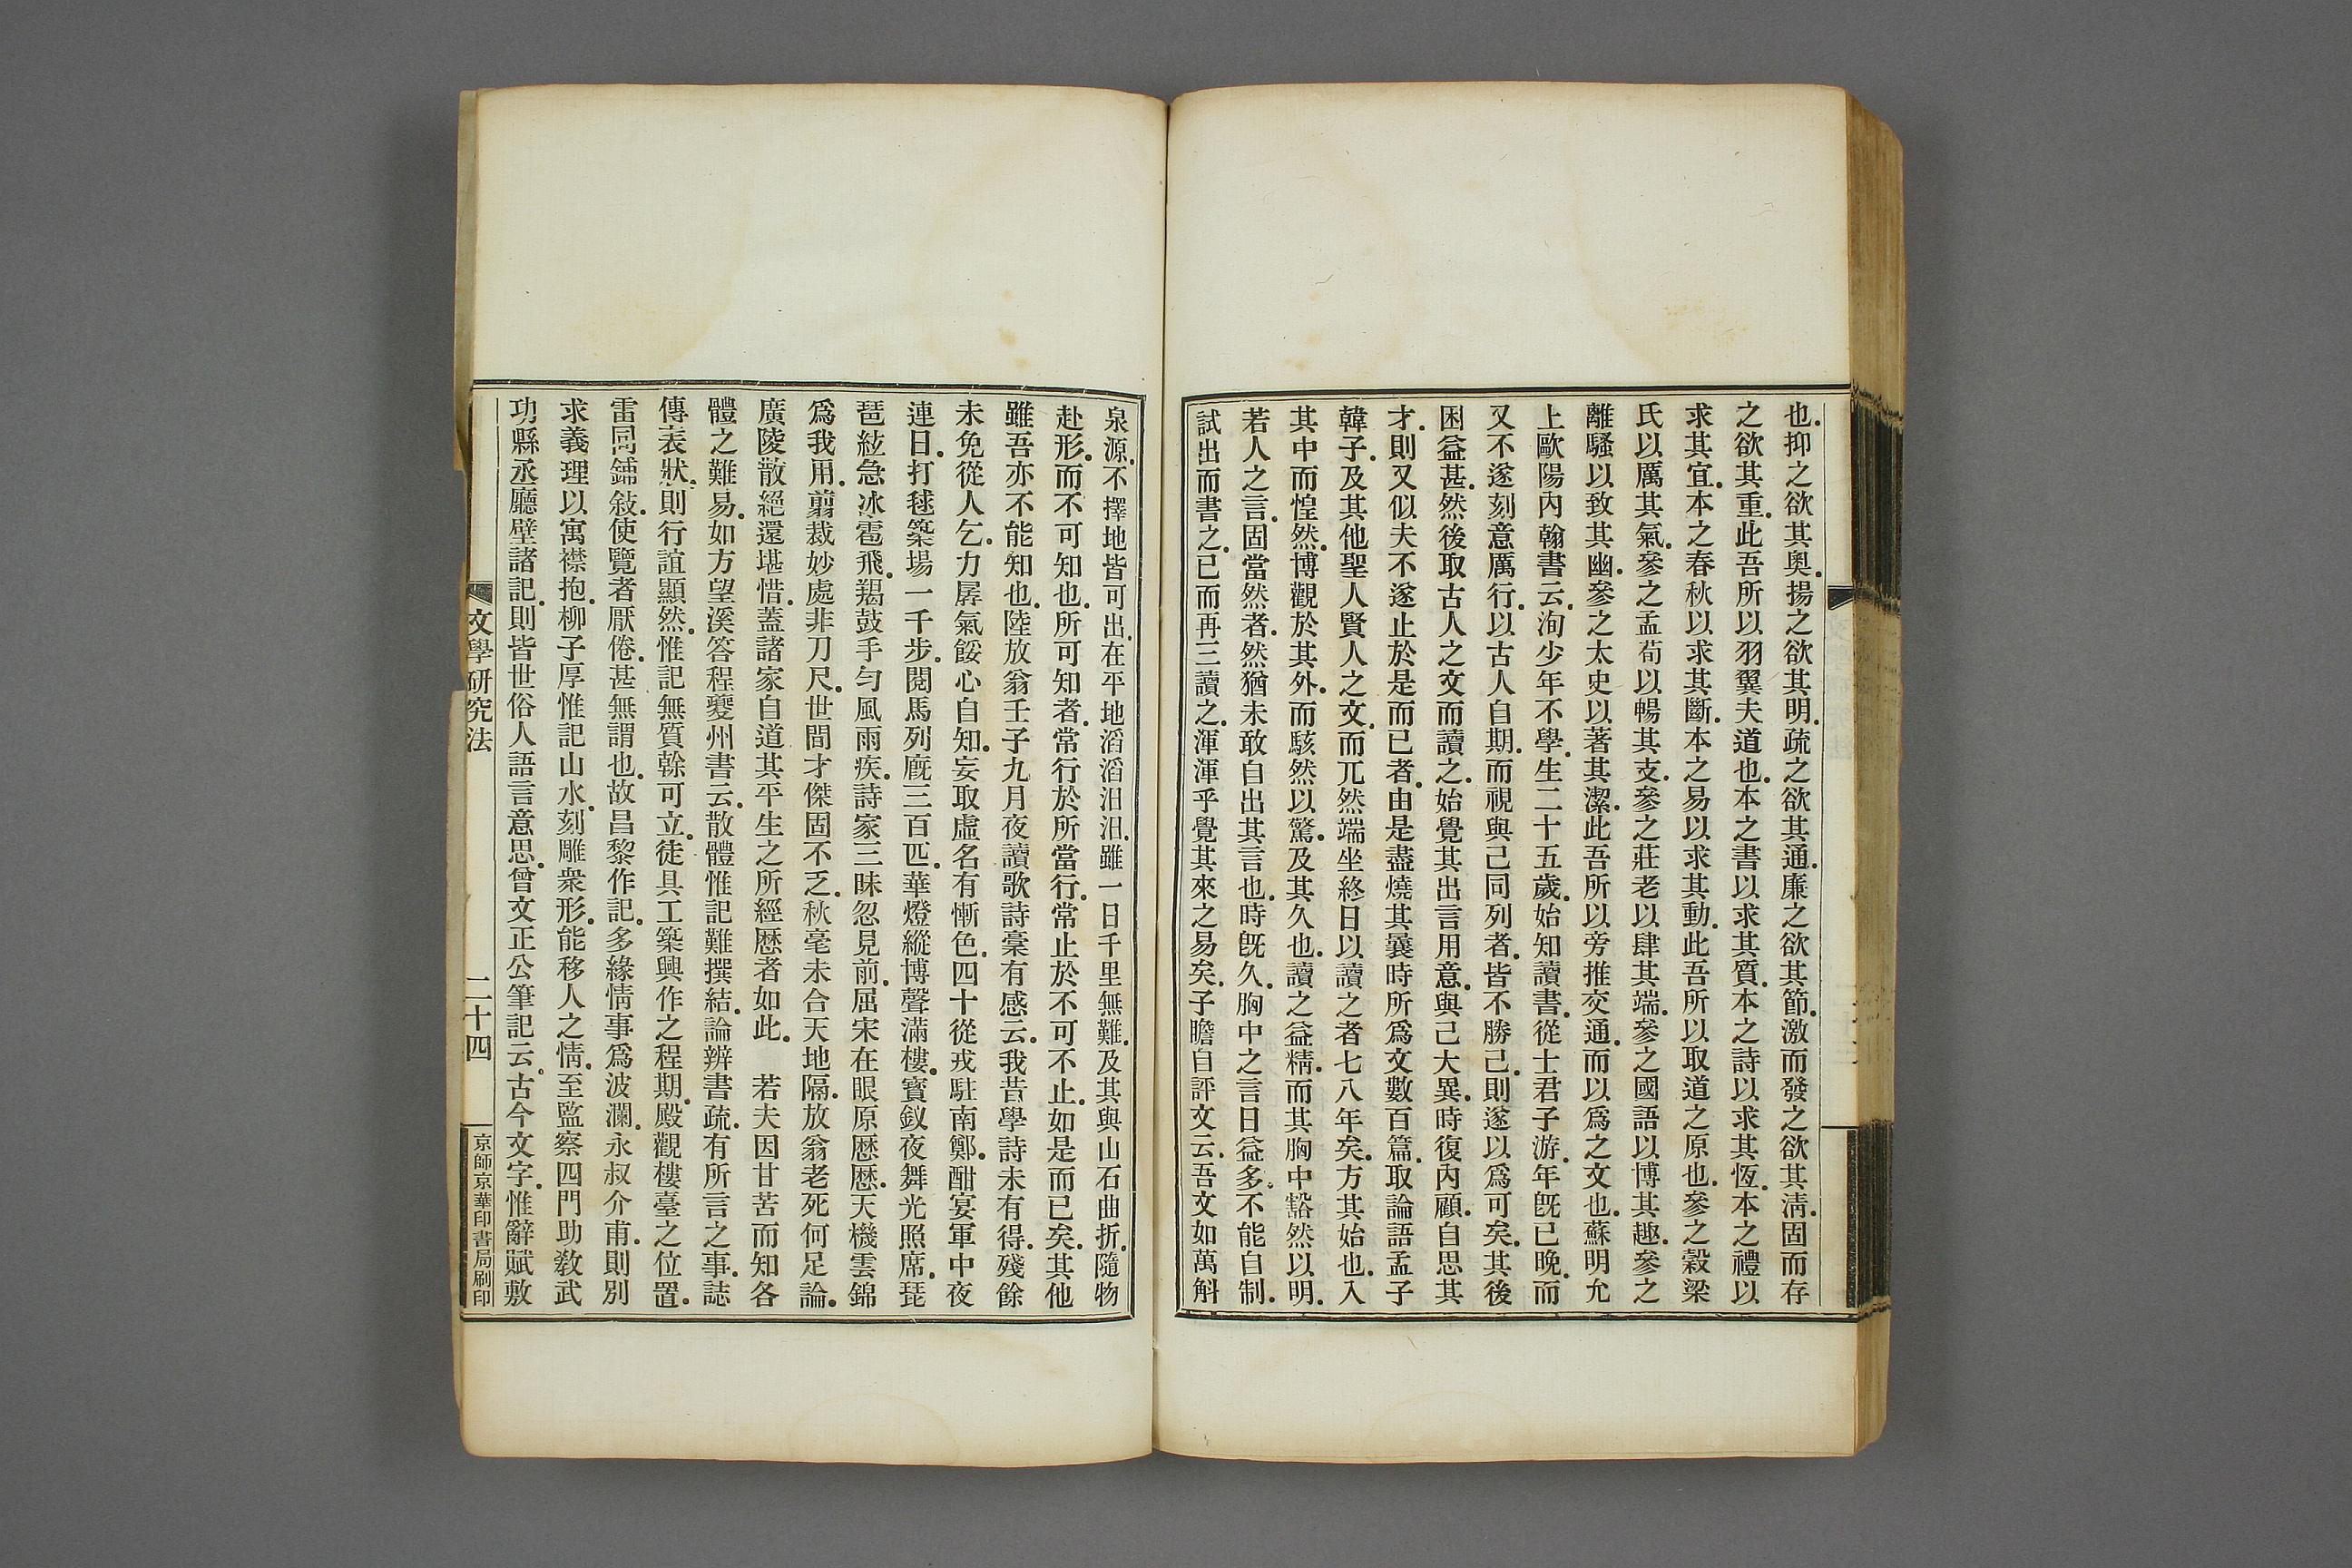 也.抑之欲其奧.揚之欲其明.疏之欲其通.廉之欲其節.激而發之欲其淸.固而存
之欲其重.此吾所以羽翼夫道也.本之書以求其質.本之詩以求其恆.本之禮以
求其宜.本之春秋以求其斷.本之易以求其動.此吾所以取道之原也.參之穀梁
氏以厲其氣.參之孟荀以暢其支.參之莊老以肆其端.參之國語以博其趣.參之
離騷以致其幽.參之太史以著其潔.此吾所以旁推交通.而以爲之文也.蘇明允
上歐陽內翰書云.洵少年不學.生二十五歲.始知讀書.從士君子游.年旣已晚.而
又不遂刻意厲行.以古人自期.而視與己同列者.皆不勝己.則遂以爲可矣.其後
困益甚.然後取古人之文而讀之.始覺其出言用意.與己大異.時復內顧.自思其
才.則又似夫不遂止於是而已者.由是盡燒其曩時所爲文數百篇.取論語孟子
韓子.及其他聖人賢人之文.而兀然端坐終日以讀之者七八年矣.方其始也.入
其中而惶然.博觀於其外.而駭然以驚.及其久也.讀之益精.而其胸中豁然以明.
若人之言.固當然者.然猶未敢自出其言也.時旣久.胸中之言日益多.不能自制.
試出而書之.已而再三讀之.渾渾乎覺其來之易矣.子瞻自評文云.吾文如萬斛
泉源.不擇地皆可出.在平地滔滔汩汩.雖一日千里無難.及其與山石曲折.隨物
赴形.而不可知也.所可知者.常行於所當行.常止於不可不止.如是而已矣.其他
雖吾亦不能知也.陸放翁壬子九月夜讀歌詩稾有感云.我昔學詩未有得.殘餘
未免從人乞.力孱氣餒心自知.妄取虛名有慚色.四十從戎駐南鄭.酣宴軍中夜
連日.打毬築場一千步.閱馬列廐三百匹.華燈縱博聲滿樓.寶釵夜舞光照席.琵
琶絃急冰雹飛.羯鼓手勻風雨疾.詩家三昧忽見前.屈宋在眼原歷歷.天機雲錦
爲我用.翦裁妙處非刀尺.世間才傑固不乏.秋毫未合天地隔.放翁老死何足論.
廣陵散絕還堪惜.蓋諸家自道其平生之所經歷者如此.　若夫因甘苦而知各
體之難易.如方望溪答程夔州書云.散體惟記難撰結.論辨書疏.有所言之事.誌
傳表狀.則行誼顯然.惟記無質榦可立.徒具工築興作之程期.殿觀樓臺之位置.
雷同鋪敍.使覽者厭倦.甚無謂也.故昌黎作記.多緣情事爲波瀾.永叔介甫.則別
求義理以寓襟抱.柳子厚惟記山水.刻雕衆形.能移人之情.至監察四門助敎武
功縣丞廳壁諸記.則皆世俗人語言意思.曾文正公筆記云.古今文字.惟辭賦敷
文學研究法
二十四
京師京華印書局刷印